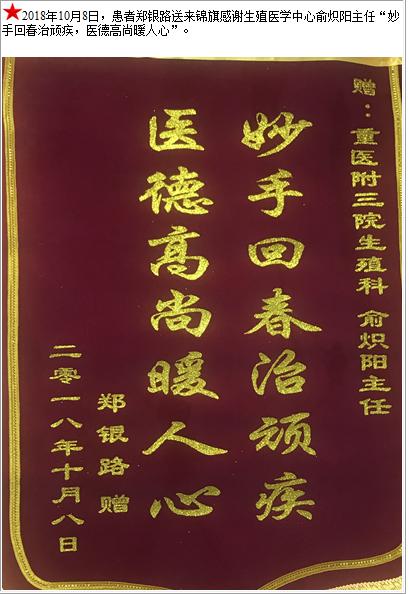 ★2018年10月8日，患者郑银路送来锦旗感谢生殖医学中心俞炽阳主任“妙
手回春治顽疾，医德高尚暖人心”。
赠：重医附三院生殖科 俞炽阳主任
妙手回春治顽疾
医德高尚暖人心
郑银路赠
二零一八年十月八日